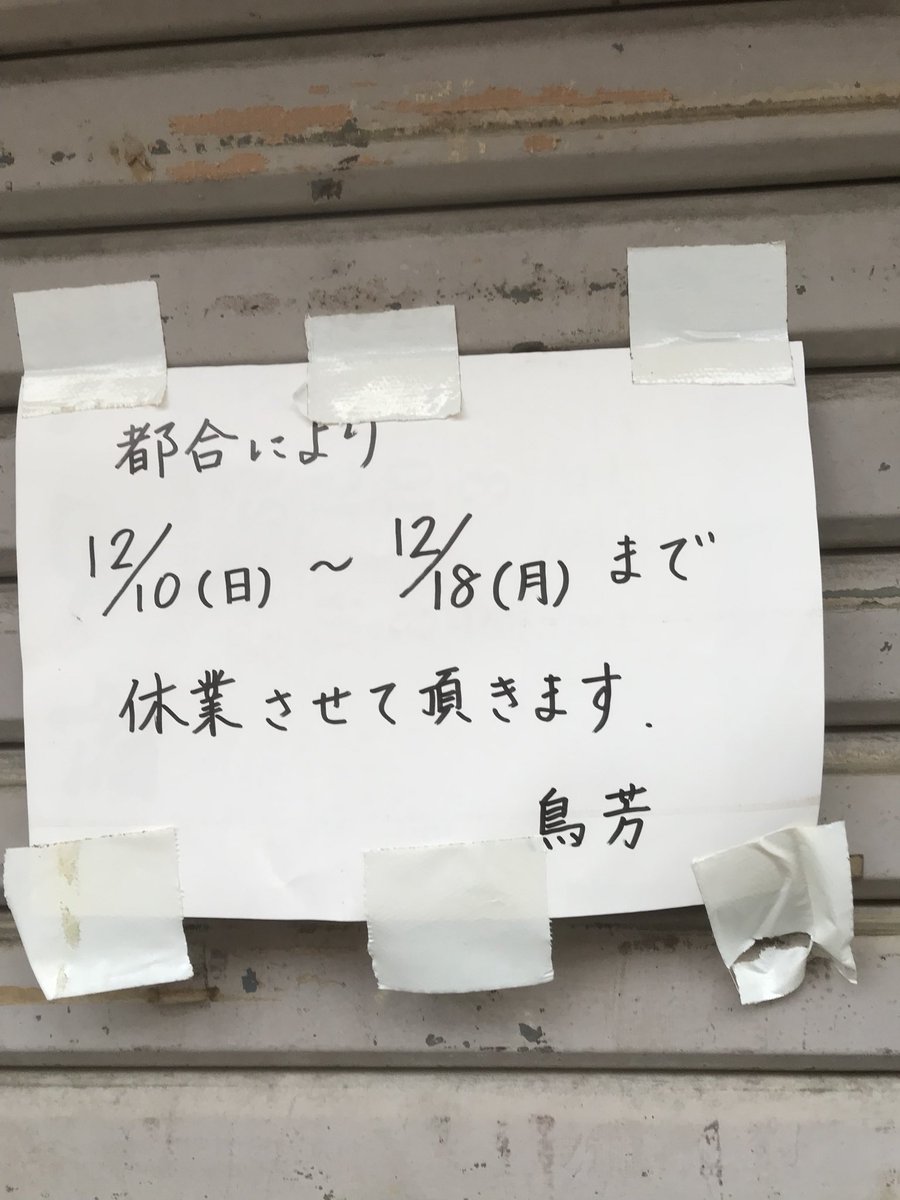 都合により
12/10(日) 〜 12/18(月) まで
休業させて頂きます.
鳥芳